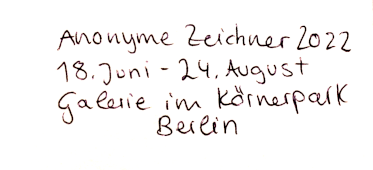 Anonyme Zeichner 2022
18. Juni - 24. August
Galerie im Körnerpark
Berlin